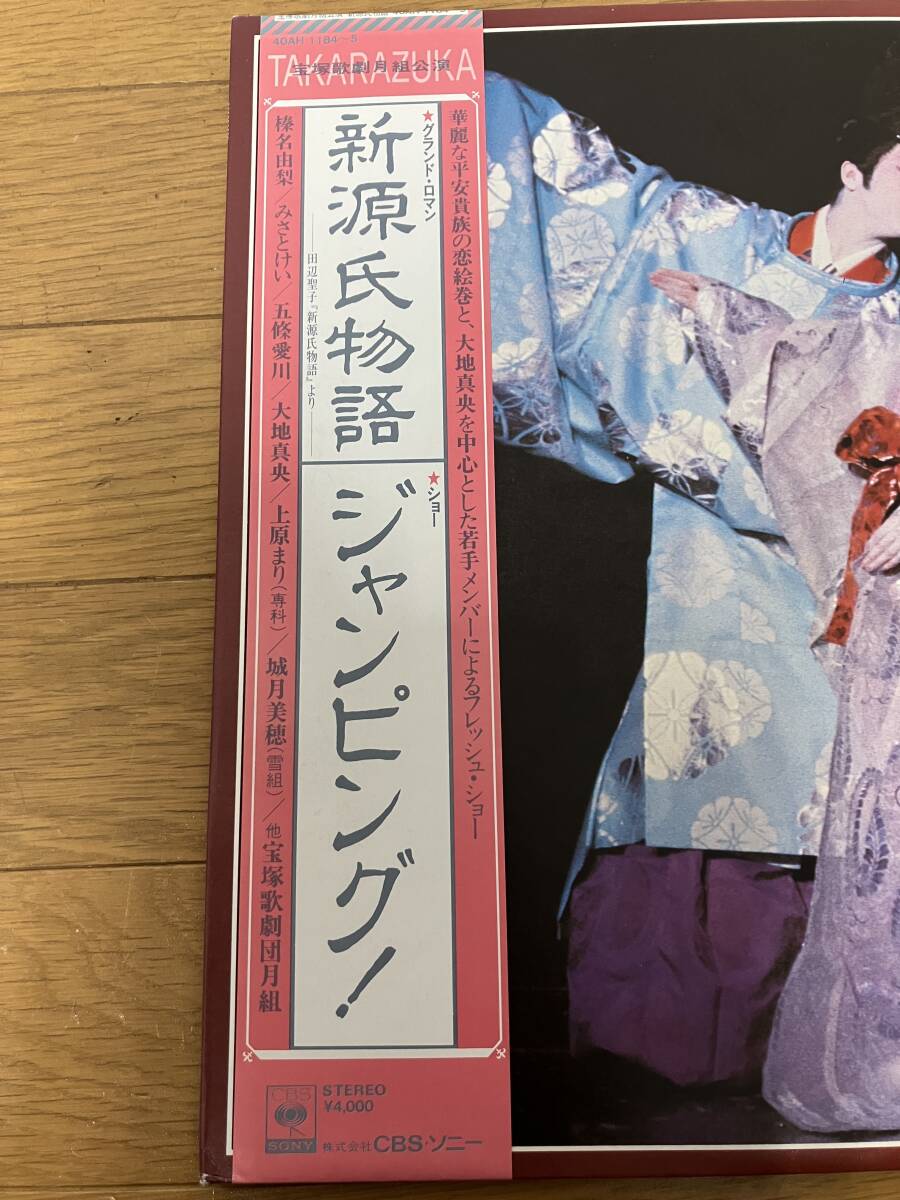 40AH 1184~5
TAKARAZUKA
宝塚歌劇月組公演
華麗な平安貴族の恋絵巻と、大地真央を中心とした若手メンバーによるフレッシュ・ショー
★グランド・ロマン
新源氏物語
——田辺聖子『新源氏物語』より——
★ショー
ジャンピング!
榛名由梨/みさとけい/五條愛川/大地真央/上原まり(専科)/城月美穂(雪組)/他宝塚歌劇団月組
CBS
SONY
STEREO
¥4,000
株式会社CBS・ソニー